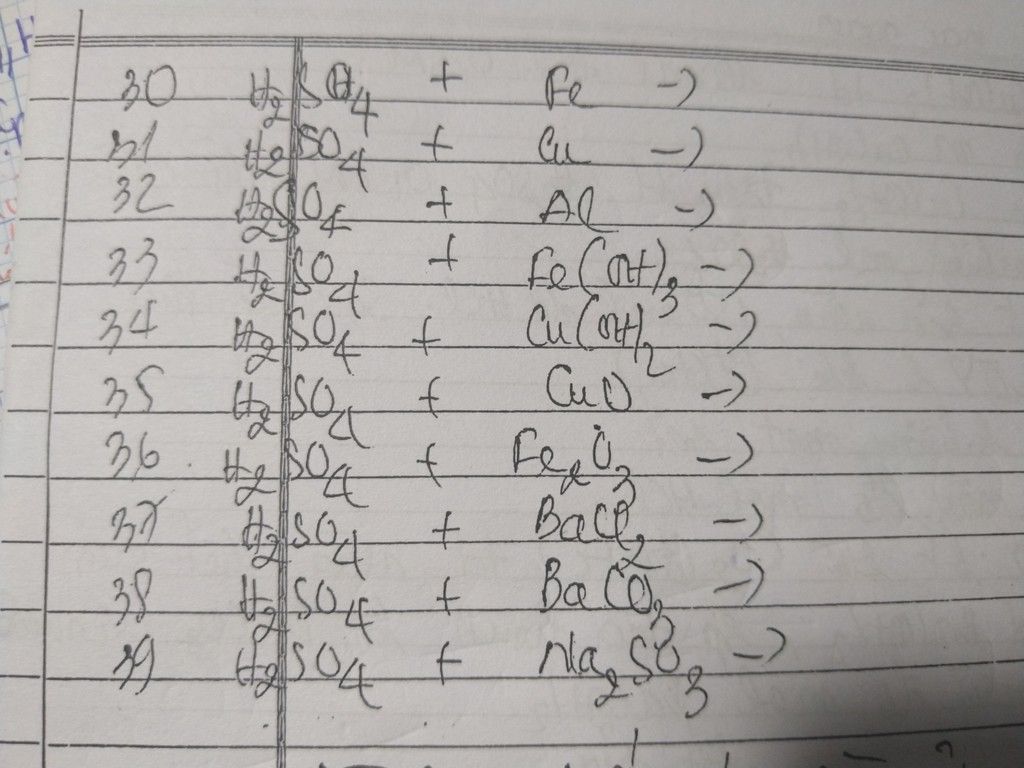 30 H₂SO₄ + Fe ->
31 H₂SO₄ + Cu ->
32 H₂SO₄ + Al ->
33 H₂SO₄ + Fe(OH)₃ ->
34 H₂SO₄ + Cu(OH)₂ ->
35 H₂SO₄ + CuO ->
36 H₂SO₄ + Fe₂O₃ ->
37 H₂SO₄ + BaCl₂ ->
38 H₂SO₄ + BaCO₃ ->
39 H₂SO₄ + Na₂SO₃ ->